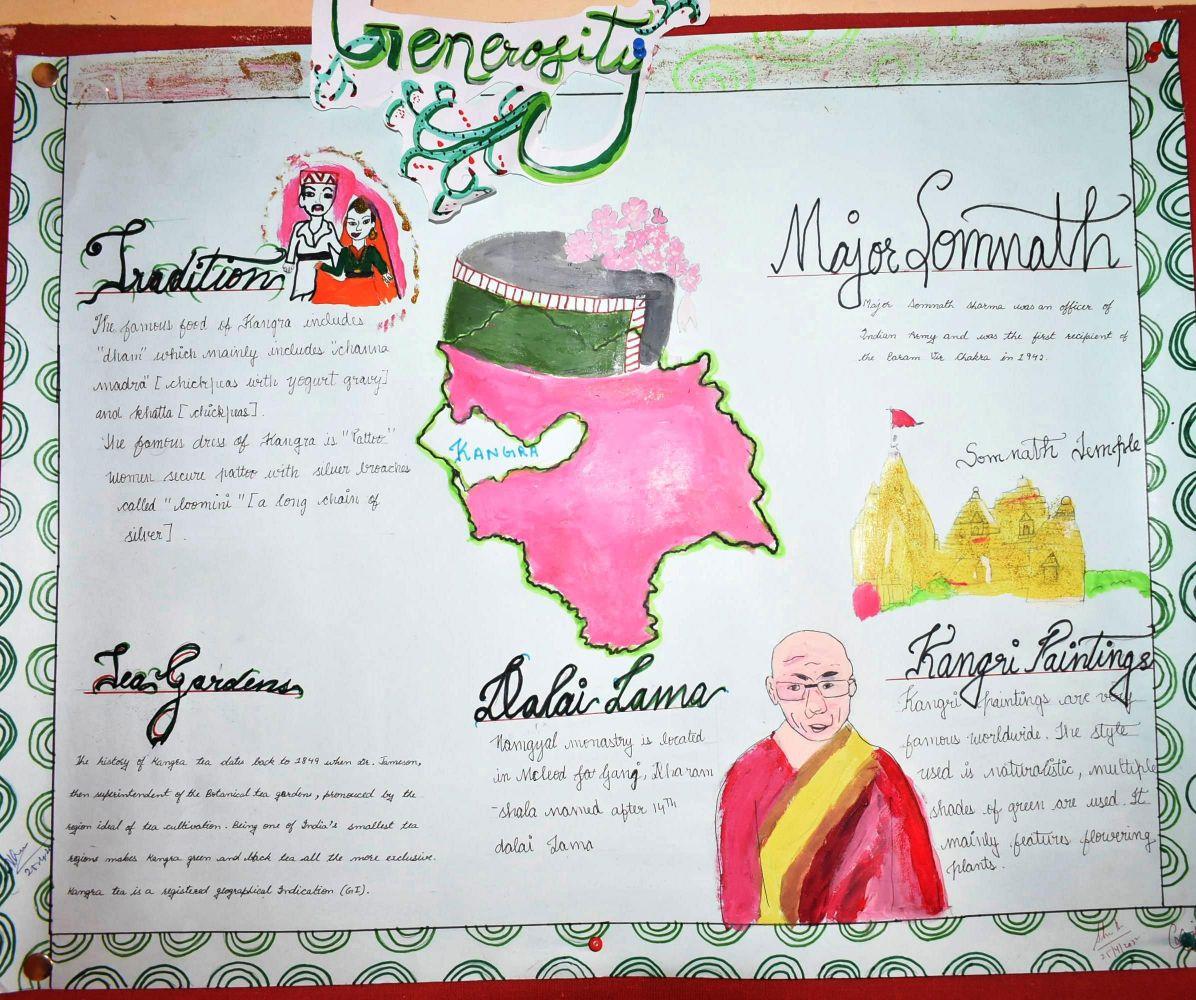 Generosity
Tradition
The famous food of Kangra includes
"dham" which mainly includes "channa
madra" [chickpeas with yogurt gravy]
and khatta [chickpeas].
The famous dress of Kangra is "Pattoo"
women secure pattoo with silver broaches
called "boomini" [a long chain of
silver]
KANGRA
Major Somnath
Major Somnath Sharma was an officer of
Indian Army and was the first recipient of
the Param Vir Chakra in 1942.
Somnath Temple
Tea Gardens
The history of Kangra tea dates back to 1849 when Dr. Jameson,
then superintendent of the Botanical tea gardens, pronouced by the
region ideal of tea cultivation. Being one of India's smallest tea
regions makes Kangra green and black tea all the more exclusive.
Kangra tea is a registered geographical Indication (GI).
Dalai Lama
Namgyal monastry is located
in Mcleod for Gang, Dharam
-shala named after 14th
dalai Lama
Kangri Paintings
Kangri paintings are very
famous worldwide. The style
used is naturalistic, multiple
shades of green are used. It
mainly features flowering
plants.
25/4/2022